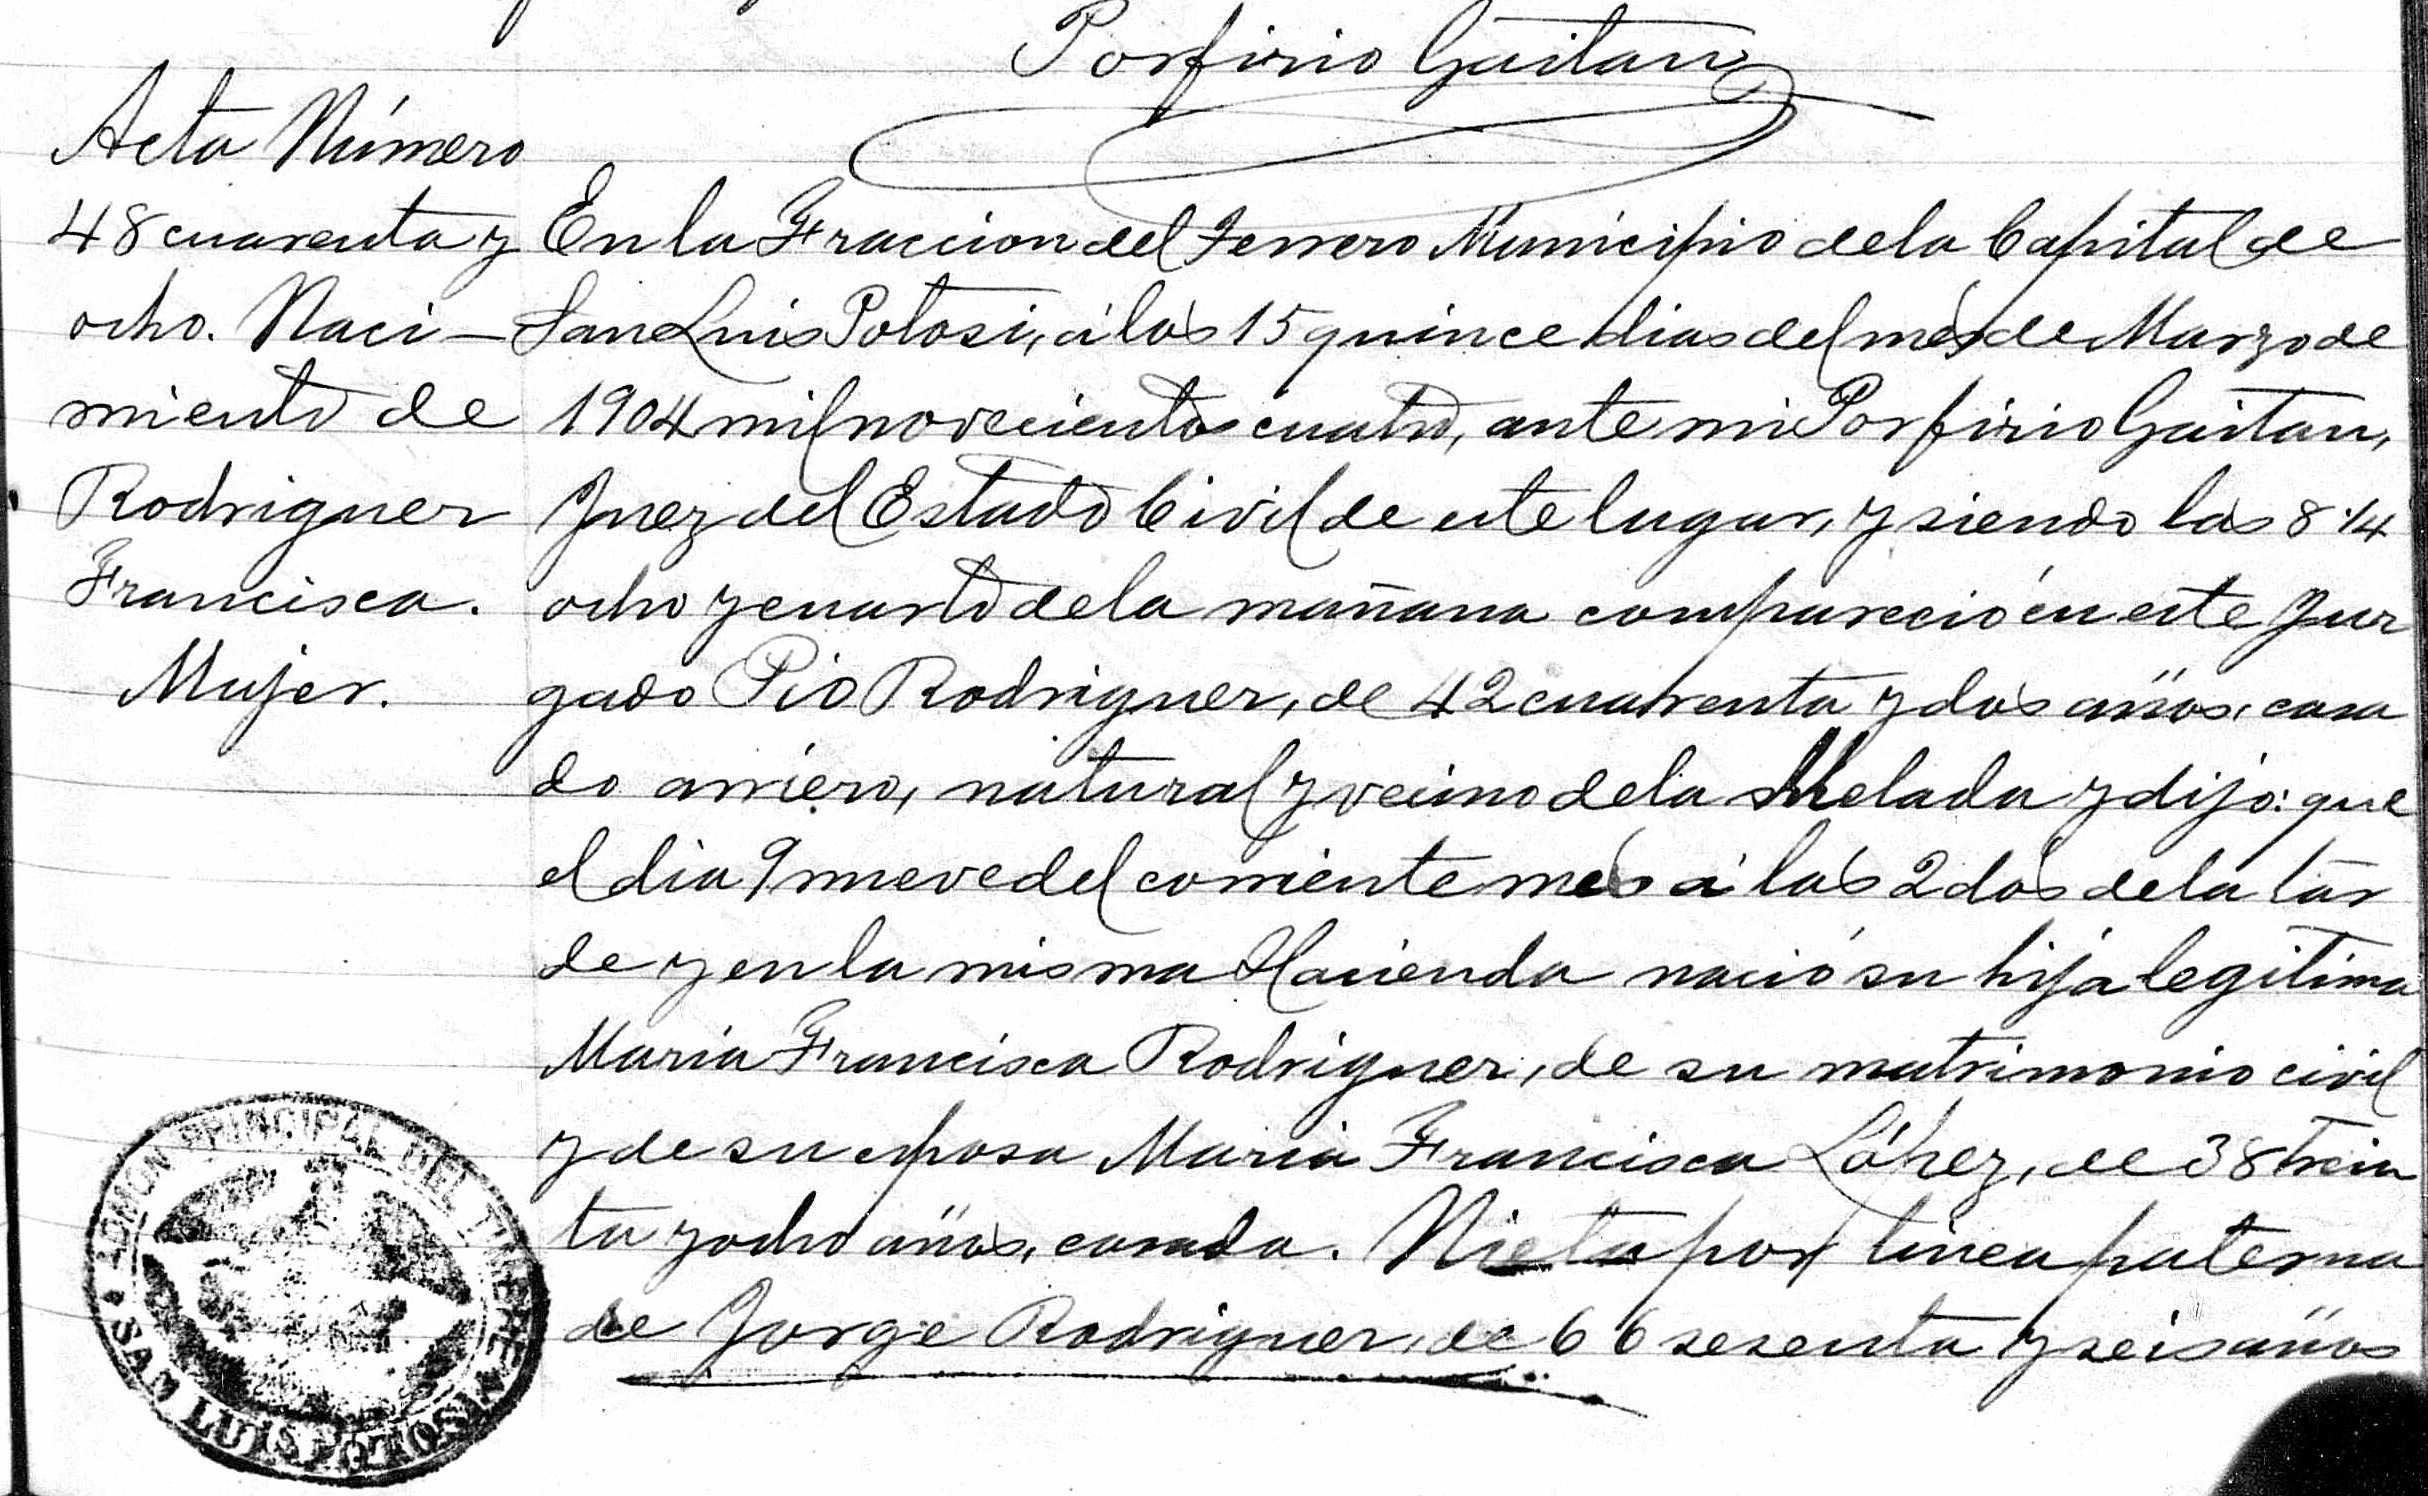 Porfirio Gaitan
Acta Número
48 cuarenta y
ocho. Naci-
miento de
Rodriguez
Francisca.
Mujer.
En la Fraccion del Terrero Municipio de la Capital de
San Luis Potosi, á los 15 quince dias del més de Marzo de
1904 mil novecientos cuatro, ante mi Porfirio Gaitan,
Juez del Estado Civil de este lugar, y siendo las 8 1/4
ocho y cuarto de la mañana compareció en este Juz
gado Pio Rodriguez, de 42 cuarenta y dos años, casa
do arriero, natural y vecino de la Melada y dijo: que
el dia 9 nueve del corriente més á las 2 dos de la tar
de y en la misma Hacienda nació su hija legitima
Maria Francisca Rodriguez, de su matrimonio civil
y de su esposa Maria Francisca López, de 38 trein
ta y ocho años, casada. Nieta por linea paterna
de Jorge Rodriguez, de 66 sesenta y seis años
ADMON PRINCIPAL DEL TIMBRE
SAN LUIS POTOSI